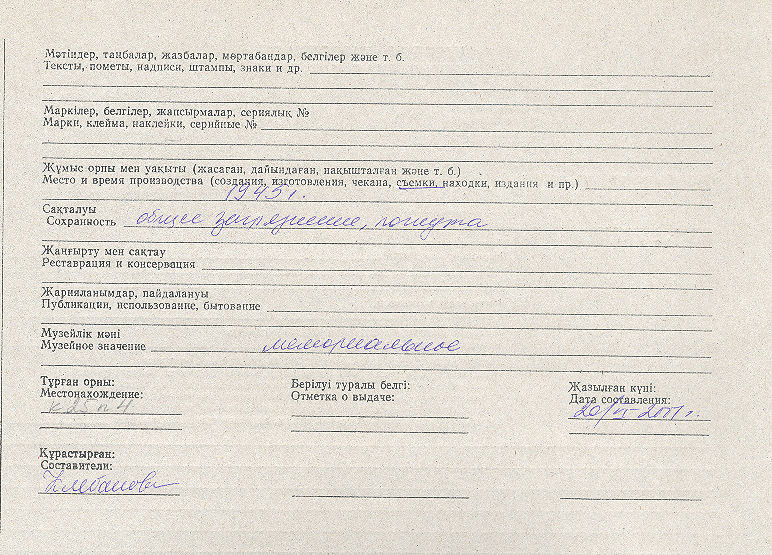 Мәтіндер, таңбалар, жазбалар, мөртабандар, белгілер және т. б.
Тексты, пометы, надписи, штампы, знаки и др.
Маркілер, белгілер, жапсырмалар, сериялық №
Марки, клейма, наклейки, серийные №
Жұмыс орны мен уақыты (жасаған, дайындаған, нақышталған және т. б.)
Место и время производства (создания, изготовления, чекана, съемки, находки, издания и пр.)
1945 г.
Сақталуы
Сохранность общее загрязнение, погнута
Жаңғырту мен сақтау
Реставрация и консервация
Жарияланымдар, пайдалануы
Публикации, использование, бытование
Музейлік мәні
Музейное значение мемориальное
Тұрған орны:
Местонахождение:
к25 п4
Берілуі туралы белгі:
Отметка о выдаче:
Жазылған күні:
Дата составления:
20/VI-2001 г.
Құрастырған:
Составители:
Клебанова